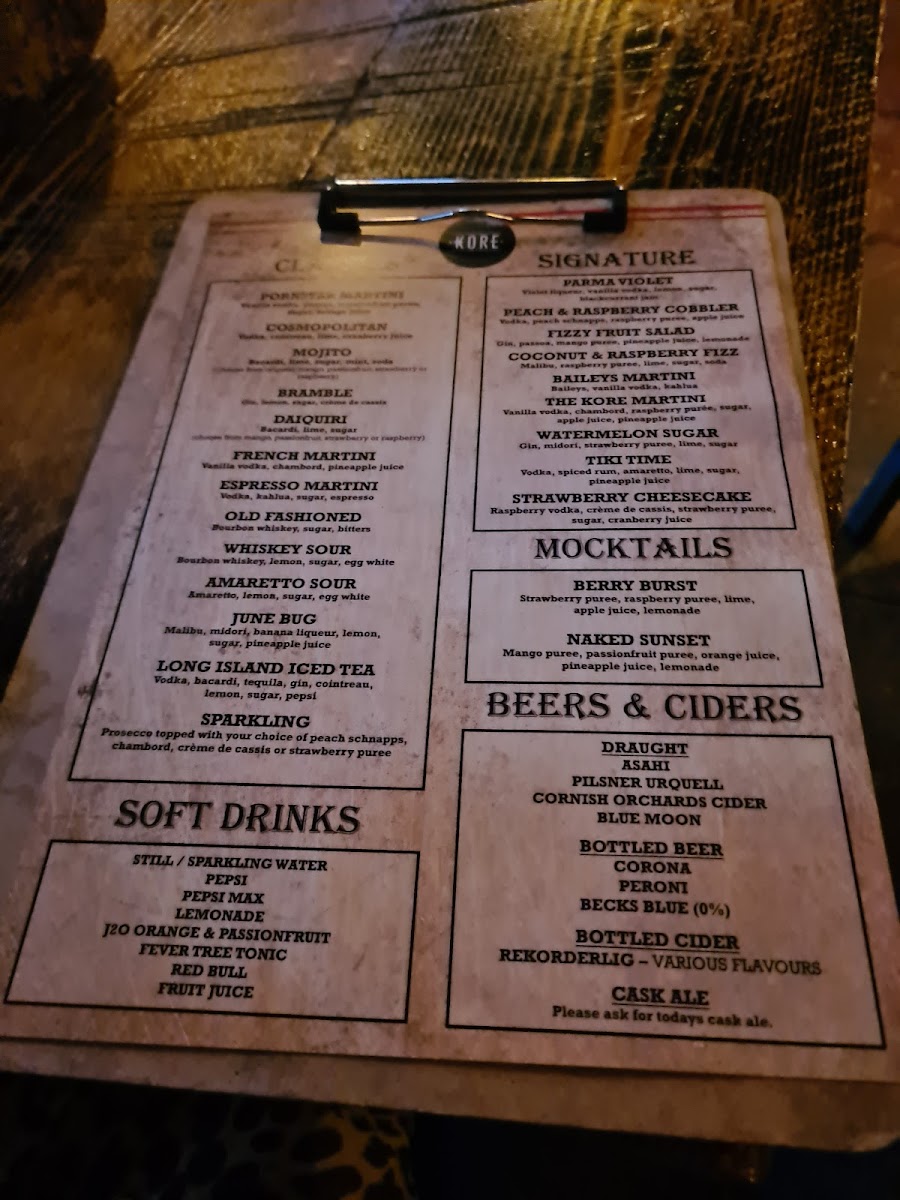 KORE
CLASSICS
PORNSTAR MARTINI
COSMOPOLITAN
Vodka, cointreau, lime, cranberry juice
MOJITO
Bacardi, lime, sugar, mint, soda
BRAMBLE
Gin, lemon, sugar, crème de cassis
DAIQUIRI
Bacardi, lime, sugar
(choose from mango, passionfruit, strawberry or raspberry)
FRENCH MARTINI
Vanilla vodka, chambord, pineapple juice
ESPRESSO MARTINI
Vodka, kahlua, sugar, espresso
OLD FASHIONED
Bourbon whiskey, sugar, bitters
WHISKEY SOUR
Bourbon whiskey, lemon, sugar, egg white
AMARETTO SOUR
Amaretto, lemon, sugar, egg white
JUNE BUG
Malibu, midori, banana liqueur, lemon,
sugar, pineapple juice
LONG ISLAND ICED TEA
Vodka, bacardi, tequila, gin, cointreau,
lemon, sugar, pepsi
SPARKLING
Prosecco topped with your choice of peach schnapps,
chambord, crème de cassis or strawberry puree
SOFT DRINKS
STILL / SPARKLING WATER
PEPSI
PEPSI MAX
LEMONADE
J2O ORANGE & PASSIONFRUIT
FEVER TREE TONIC
RED BULL
FRUIT JUICE
SIGNATURE
PARMA VIOLET
Violet liqueur, vanilla vodka, lemon, sugar,
blackcurrant jam
PEACH & RASPBERRY COBBLER
Vodka, peach schnapps, raspberry puree, apple juice
FIZZY FRUIT SALAD
Gin, passoa, mango puree, pineapple juice, lemonade
COCONUT & RASPBERRY FIZZ
Malibu, raspberry puree, lime, sugar, soda
BAILEYS MARTINI
Baileys, vanilla vodka, kahlua
THE KORE MARTINI
Vanilla vodka, chambord, raspberry purée, sugar,
apple juice, pineapple juice
WATERMELON SUGAR
Gin, midori, strawberry puree, lime, sugar
TIKI TIME
Vodka, spiced rum, amaretto, lime, sugar,
pineapple juice
STRAWBERRY CHEESECAKE
Raspberry vodka, crème de cassis, strawberry puree,
sugar, cranberry juice
MOCKTAILS
BERRY BURST
Strawberry puree, raspberry puree, lime,
apple juice, lemonade
NAKED SUNSET
Mango puree, passionfruit puree, orange juice,
pineapple juice, lemonade
BEERS & CIDERS
DRAUGHT
ASAHI
PILSNER URQUELL
CORNISH ORCHARDS CIDER
BLUE MOON
BOTTLED BEER
CORONA
PERONI
BECKS BLUE (0%)
BOTTLED CIDER
REKORDERLIG – VARIOUS FLAVOURS
CASK ALE
Please ask for todays cask ale.